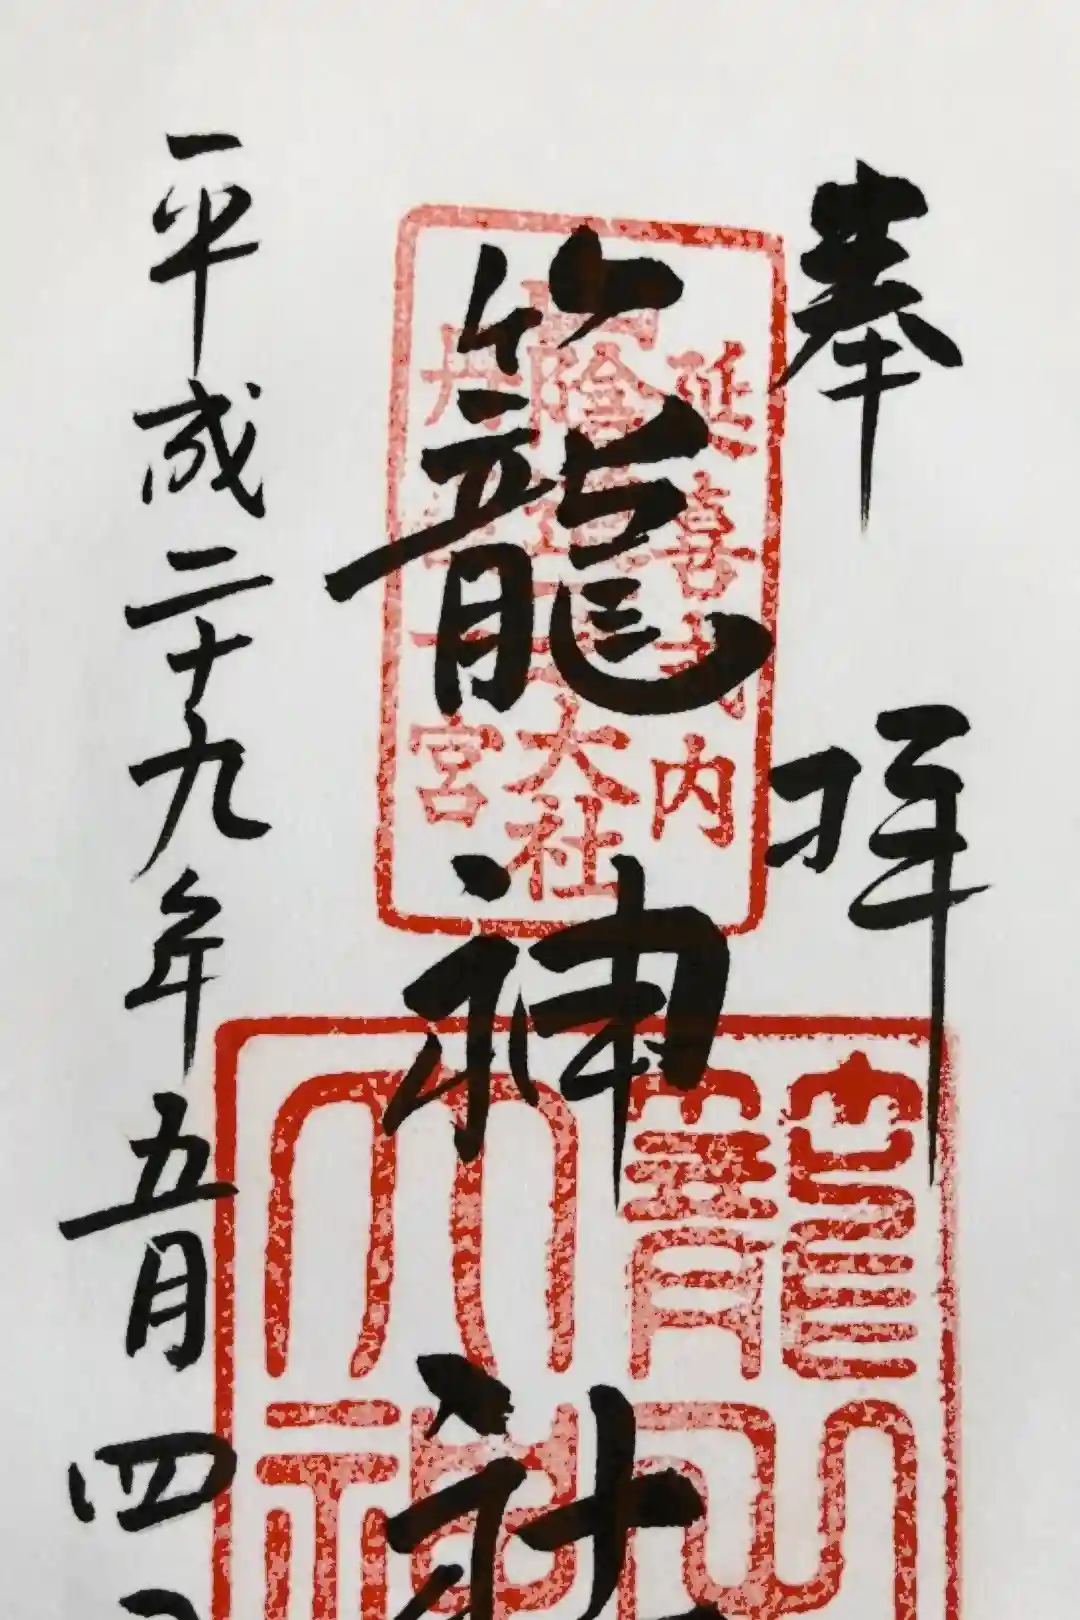 奉拝
延喜式内
山陰道一大社
丹後一宮
籠神社
籠之大神
平成二十九年五月四